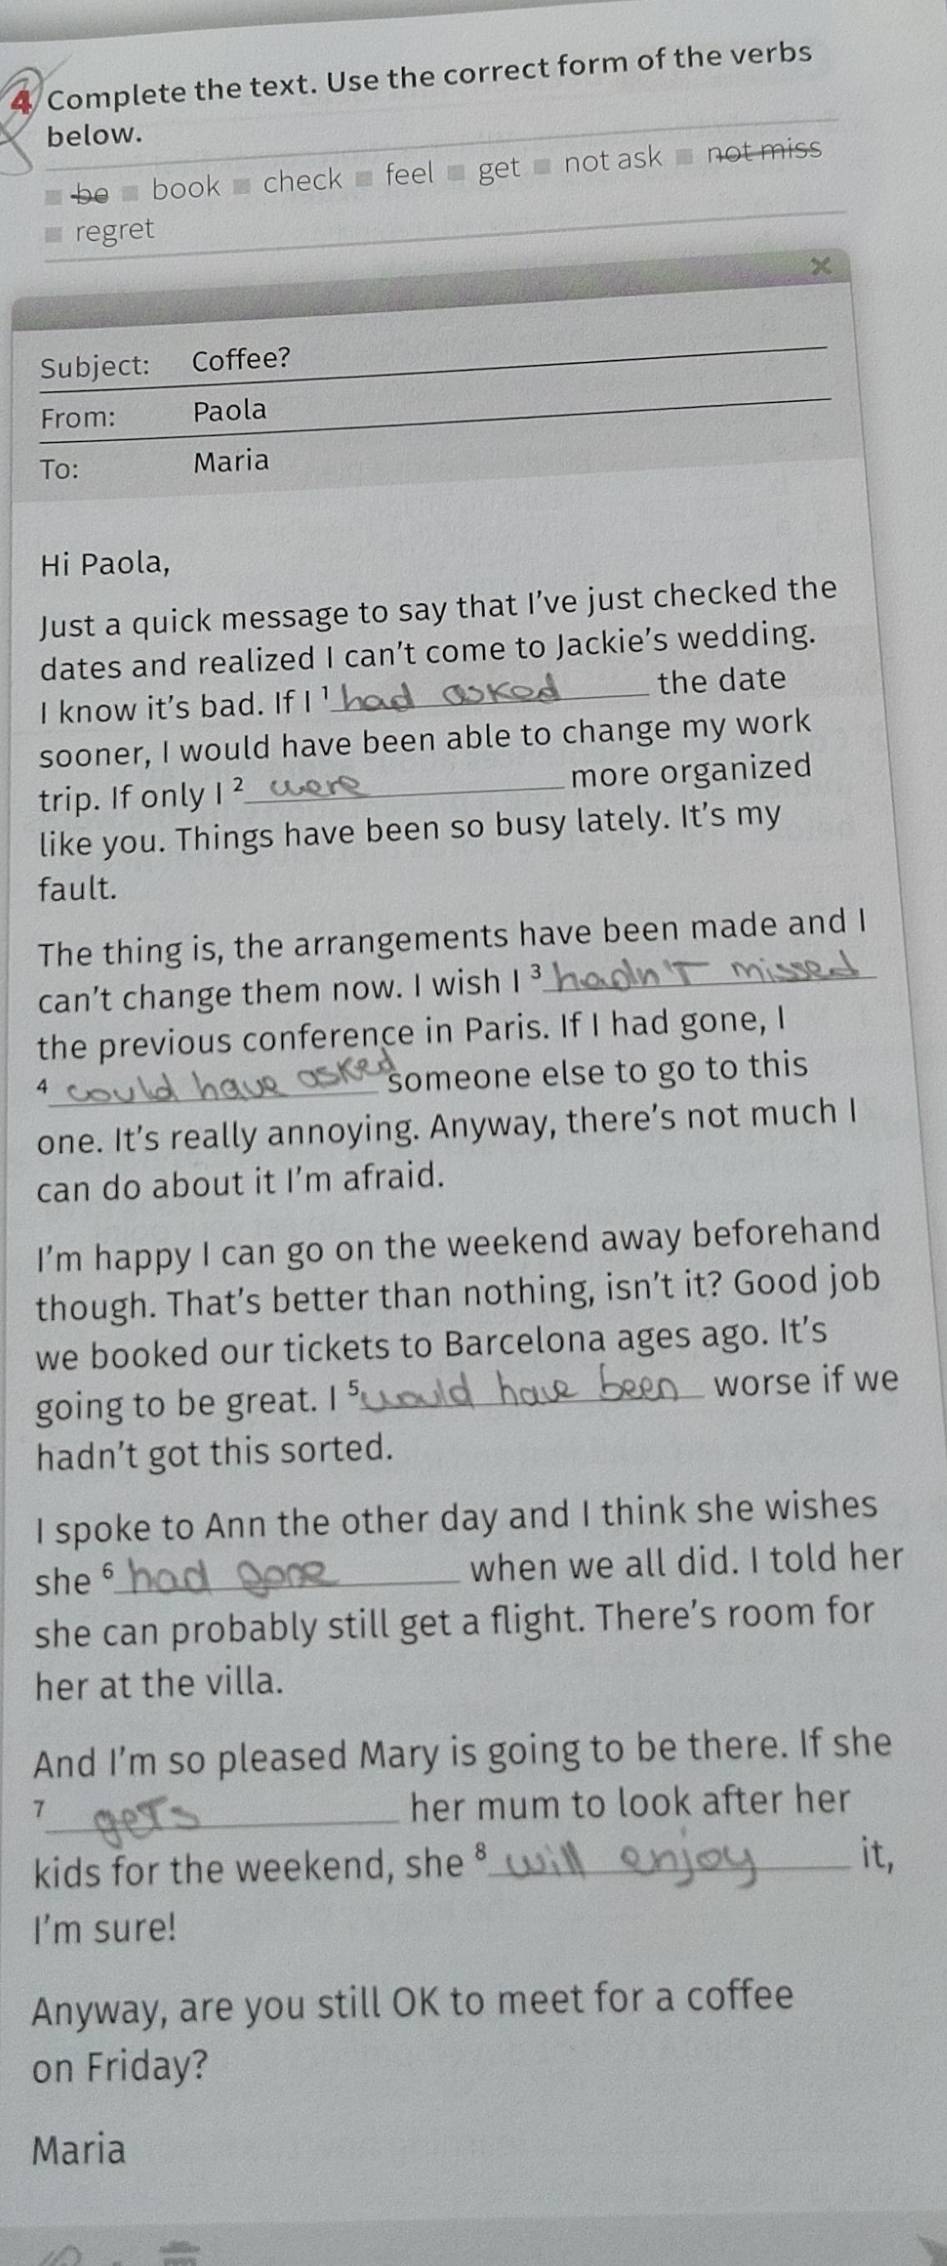 4 Complete the text. Use the correct form of the verbs
below.
be book check feel get not ask not miss
regret
Subject: Coffee?
From: Paola
To: Maria
Hi Paola,
Just a quick message to say that I've just checked the
dates and realized I can't come to Jackie's wedding.
I know it's bad. If I ¹ had asked the date
sooner, I would have been able to change my work
trip. If only I ² were more organized
like you. Things have been so busy lately. It's my
fault.
The thing is, the arrangements have been made and I
can't change them now. I wish I ³ hadn't missed
the previous conference in Paris. If I had gone, I
⁴ could have asked someone else to go to this
one. It's really annoying. Anyway, there's not much I
can do about it I'm afraid.
I'm happy I can go on the weekend away beforehand
though. That's better than nothing, isn't it? Good job
we booked our tickets to Barcelona ages ago. It's
going to be great. I ⁵ would have been worse if we
hadn't got this sorted.
I spoke to Ann the other day and I think she wishes
she ⁶ had gone when we all did. I told her
she can probably still get a flight. There's room for
her at the villa.
And I'm so pleased Mary is going to be there. If she
⁷ gets her mum to look after her
kids for the weekend, she ⁸ will enjoy it,
I'm sure!
Anyway, are you still OK to meet for a coffee
on Friday?
Maria